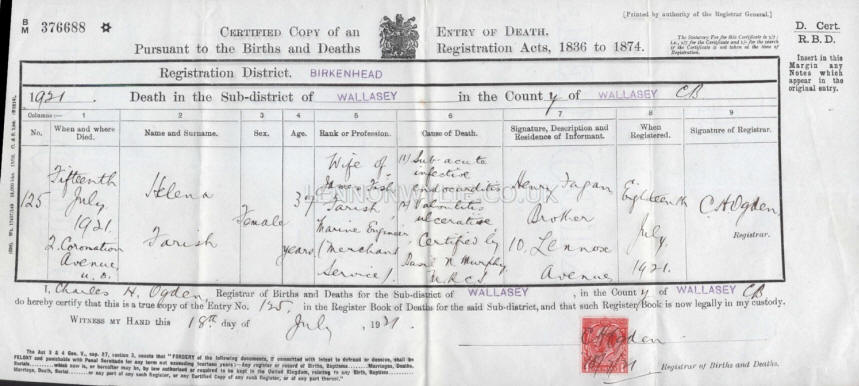 [Printed by authority of the Registrar General.]
B M 376688
CERTIFIED COPY of an ENTRY OF DEATH.
Pursuant to the Births and Deaths Registration Acts, 1836 to 1874.
The Statutory Fee for this Certificate is
Registration.
D. Cert.
R. B. D.
Insert in this
Margin any
Notes which
appear in the
original entry.
Registration District. BIRKENHEAD
1921. Death in the Sub-district of WALLASEY in the County of WALLASEY CB
Columns :— 1 2 3 4 5 6 7 8 9
No. When and where Died. Name and Surname. Sex. Age. Rank or Profession. Cause of Death. Signature, Description and Residence of Informant. When Registered. Signature of Registrar.
125
Fifteenth
July
1921
2. Coronation
Avenue
Helena
Farish
Female
37
years
Wife of
James
Farish
Marine Engineer
(Merchant
Service)
(1) Sub-acute
infective
endocarditis
(2) Valvulitis
ulcerative
Certified by
David N. Murphy
M.R.C.S.
Henry Fagan
Broker
10. Lennox
Avenue
Eighteenth
July
1921.
C H Ogden
Registrar.
LENNONWYLIE.CO.UK
I, Charles H. Ogden, Registrar of Births and Deaths for the Sub-district of WALLASEY, in the County of WALLASEY CB
do hereby certify that this is a true copy of the Entry No. 125, in the Register Book of Deaths for the said Sub-district, and that such Register Book is now legally in my custody.
WITNESS MY HAND this 18th day of July, 1921.
C H Ogden
Registrar of Births and Deaths.
The Act 3 & 4 Geo. V., cap. 27, section 3, enacts that "FORGERY of the following documents, if committed with intent to defraud or deceive, shall be
FELONY and punishable with Penal Servitude for any term not exceeding fourteen years:—Any register or record of Births, Baptisms Marriages, Deaths,
Burials which now is, or hereafter may be, by law authorised or required to be kept in the United Kingdom, relating to any Birth, Baptism
Marriage, Death, Burial or any part of any such Register, or any Certified Copy of any such Register, or of any part thereof."